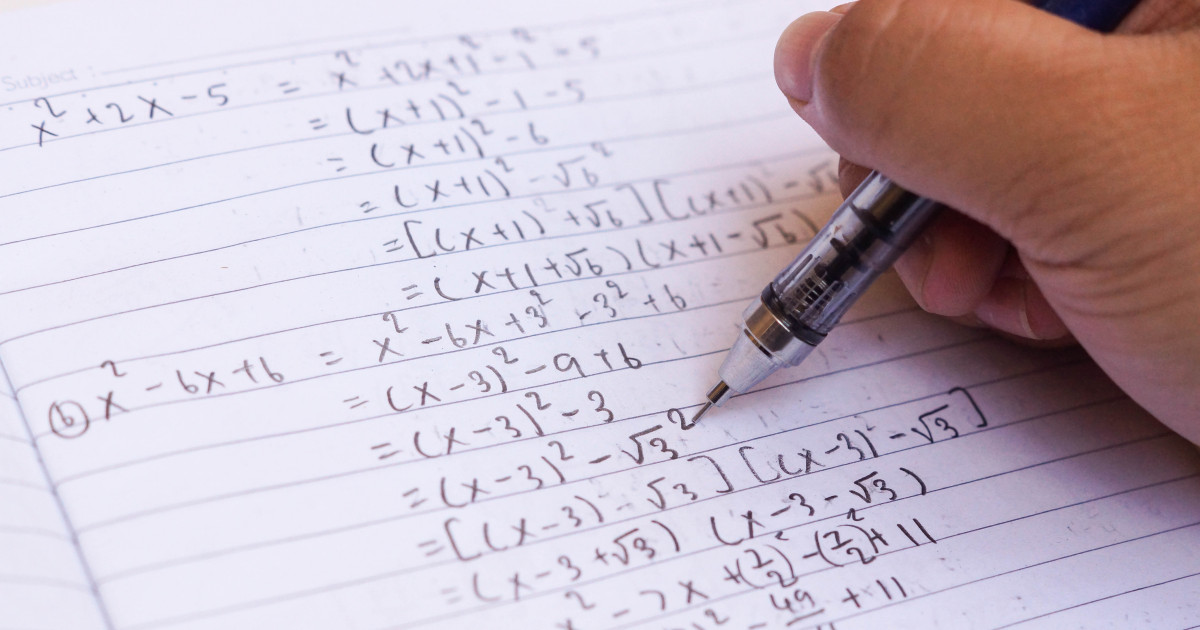 Subject :
x² + 2x - 5 = x² + 2x + 1² - 1² - 5
= (x+1)² - 1 - 5
= (x+1)² - 6
= (x+1)² - √6²
= [(x+1)² + √6] [(x+1)² - √6
= (x+1+√6) (x+1-√6)
(b) x² - 6x + 6 = x² - 6x + 3² - 3² + 6
= (x-3)² - 9 + 6
= (x-3)² - 3
= (x-3)² - √3²
= [(x-3) - √3] [(x-3)² - √3]
= (x-3+√3) (x-3-√3)
x² - 7x + (7/2)² - (7/2)² + 11
² - 49/ + 11